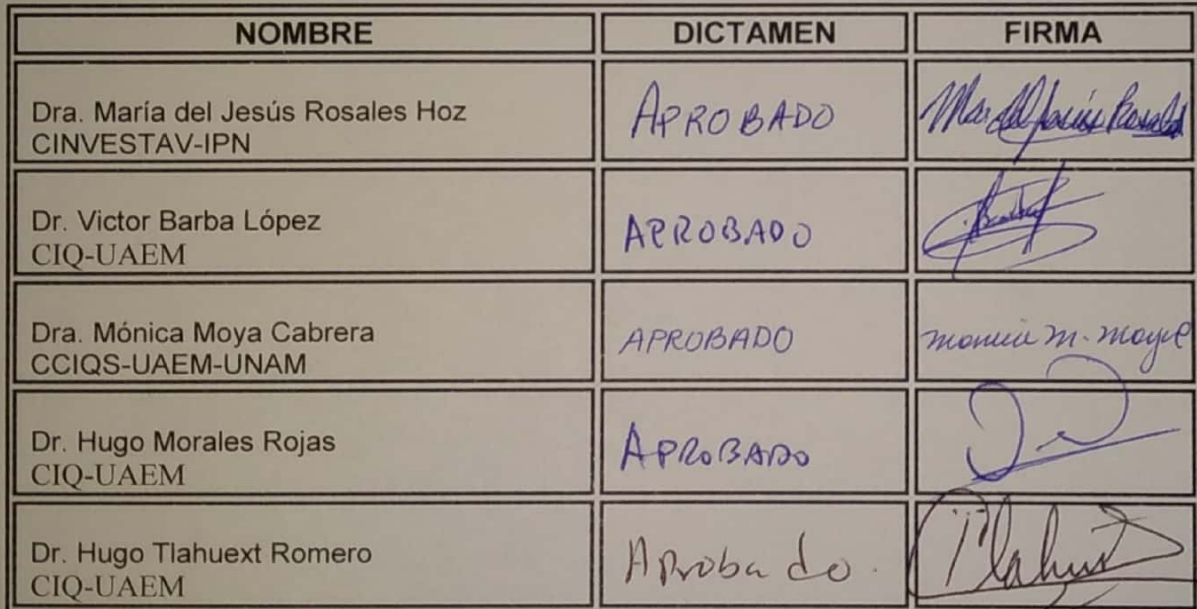 NOMBRE DICTAMEN FIRMA
Dra. María del Jesús Rosales Hoz
CINVESTAV-IPN
APROBADO
Dr. Victor Barba López
CIQ-UAEM
APROBADO
Dra. Mónica Moya Cabrera
CCIQS-UAEM-UNAM
APROBADO
Dr. Hugo Morales Rojas
CIQ-UAEM
APROBADO
Dr. Hugo Tlahuext Romero
CIQ-UAEM
Aprobado.